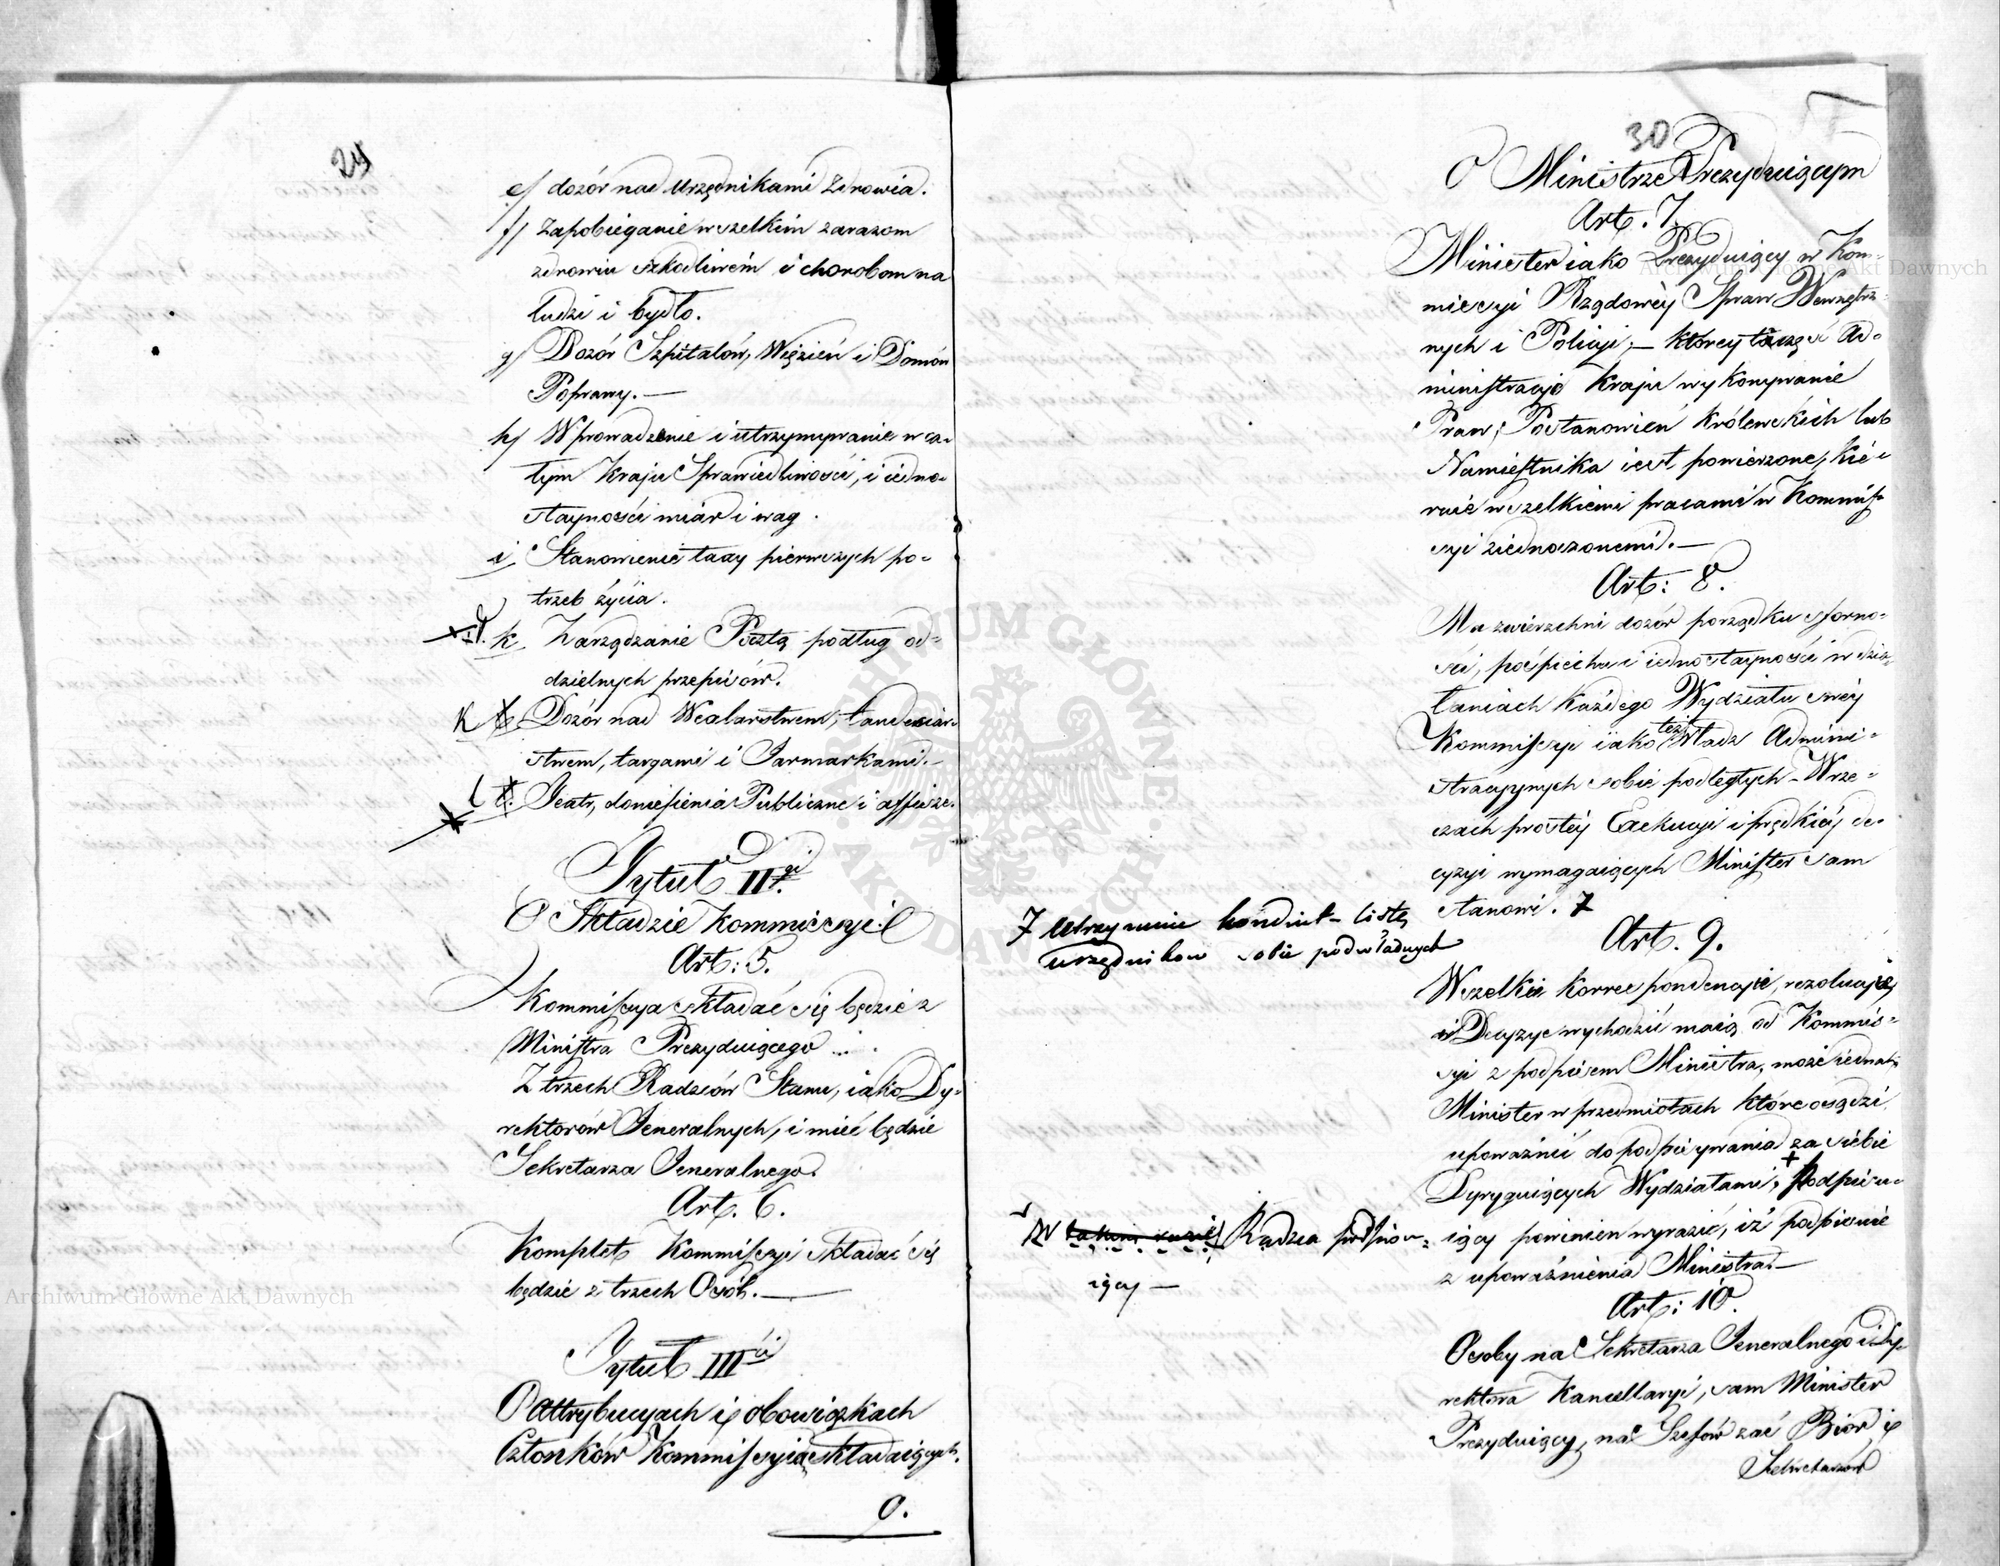 29
e/ dozór nad Urzędnikami Zdrowia.
f/ Zapobieganie wszelkim zarazom
zdrowiu szkodliwem i chorobom na
ludzi i bydło.
g/ Dozór Szpitalów, Więzień i Domów
Poprawy. —
h/ Wprowadzenie i utrzymywanie w ca-
łym Kraju Sprawiedliwości, i iedno-
stayności miar i wag.
i Stanowienie taxy pierwszych po-
trzeb życia.
k Zarządzanie Pocztą podług od-
dzielnych przepisów.
K Dozór nad
stwem, targami i Jarmarkami. —
l Teatr, doniesienia Publiczne i affisze.
Tytuł IIgi
O Składzie Kommissyi
Art: 5.
Kommissya składać się będzie z
Ministra Prezyduiącego
Z trzech Radzców Stanu, iako Dy-
rektorów Jeneralnych, i mieć będzie
Sekretarza Jeneralnego.
Art. 6.
Komplet Kommissyi składać się
będzie z trzech Osób. —
Tytuł IIIci
O Attrybucyach i obowiązkach
Członków Kommissyią składaiących.
O.
30
O Ministrze Prezyduiącym
Art. 7.
Minister iako Prezyduiący w Kom-
missyi Rządowéy Spraw Wewnętrz-
nych i Policyi, — któréy część Ad-
ministracyi Kraju wykonywanie
Praw, Postanowień Królewskich lub
Namiestnika iest powierzone, kie-
ruie wszelkiemi pracami w Kommis-
syi ziednoczonemi. —
Art: 8.
Ma zwierzchni dozór porządku sforno-
ści, pośpiechu i iednostayności w dzia-
łaniach każdego Wydziału swéy
Kommissyi iako też Władz Admini-
stracyynych sobie podległych — W rze-
czach prostéy Exekucyi i prędkiéy de-
cyzyi wymagaiących Minister sam
stanowi. 7
7 Utrzymuie konduit-listę
urzędnikow sobie podwładnych
Art. 9.
Wszelkie korrespondencye, rezolucye
i Decyzye wychodzić maią od Kommis-
syi z podpisem Ministra, może iednak
Minister w przedmiotach które osądzi
upoważnić do podpisywania za siebie
Dyryguiących Wydziałami, + Podpisu-
iący powinien wyrazić, iż podpisuie
z upoważnienia Ministra. —
W takim razie Radzca podpisu-
iący —
Art: 10.
Osoby na Sekretarza Jeneralnego i Dy-
rektora Kancellaryi, sam Minister
Prezyduiący, na Szefów zaś Biór i
Sekretarzow
Archiwum Główne Akt Dawnych
Archiwum Główne Akt Dawnych
ARCHIWUM GŁÓWNE
AKT DAWNYCH